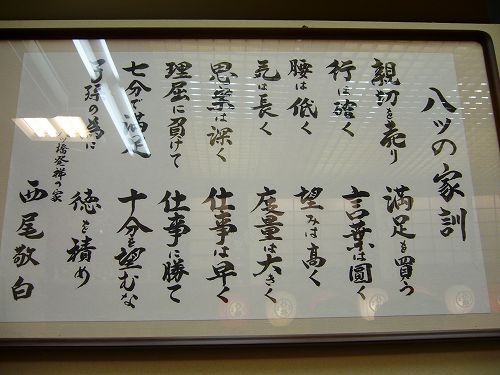 八ツの家訓
親切を売り 満足を買う
行は確く 言葉は圓く
腰は低く 望みは高く
気は長く 度量は大きく
思案は深く 仕事は早く
理屈に負けて 仕事に勝て
七分で満足 十分を望むな
子孫の為に 徳を積め
橋発祥の家
西尾敬白